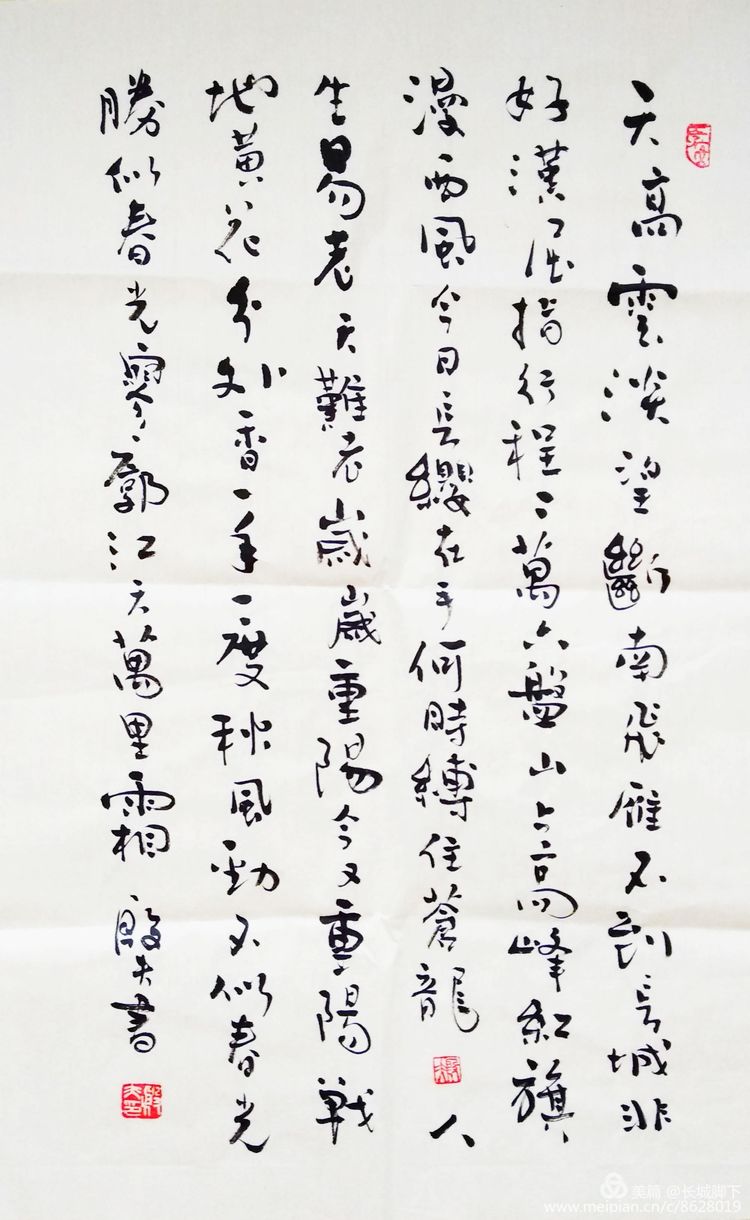 天高雲淡望斷南飛雁不到長城非
好漢屈指行程二萬六盤山上高峰紅旗
漫西風今日長纓在手何時縛住蒼龍 人
生易老天難老歲歲重陽今又重陽戰
地黃花分外香一年一度秋風勁不似春光
勝似春光寥廓江天萬里霜 殷夫書
美篇 @长城脚下
www.meipian.cn/c/8628019